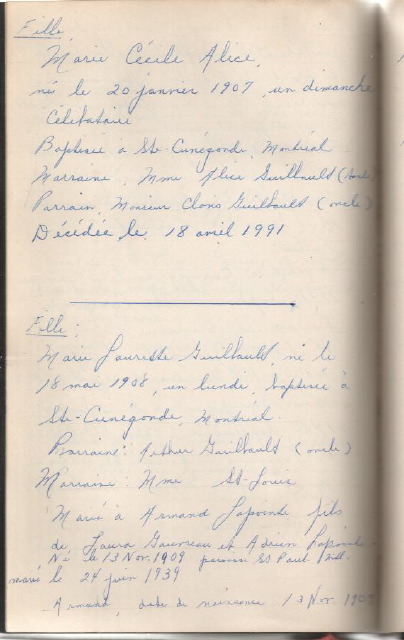 Fille
Marie Cécile Alice,
né le 20 janvier 1907, un dimanche
Célibataire
Baptisée à Ste-Cunégonde, Montréal
Marraine, Mme Alice Guilbault (
Parrain, Monsieur Clovis Guilbault (oncle)
Décédée, le, 18 avril 1991
Fille:
Marie Laurette Guilbault, né le
18 mai 1908, un lundi, baptisée à
Ste-Cunégonde, Montréal.
Parraine: Arthur Guilbault (oncle)
Marraine: Mme St-Louis
Marié à Armand Lapointe fils
de, Laura Gauvreau et Adrien Lapointe
Né le 13 Nov. 1909 paroisse St Paul Mtl.
marié le 24 juin 1939
Armand, date de naissance 13 Nov. 1909